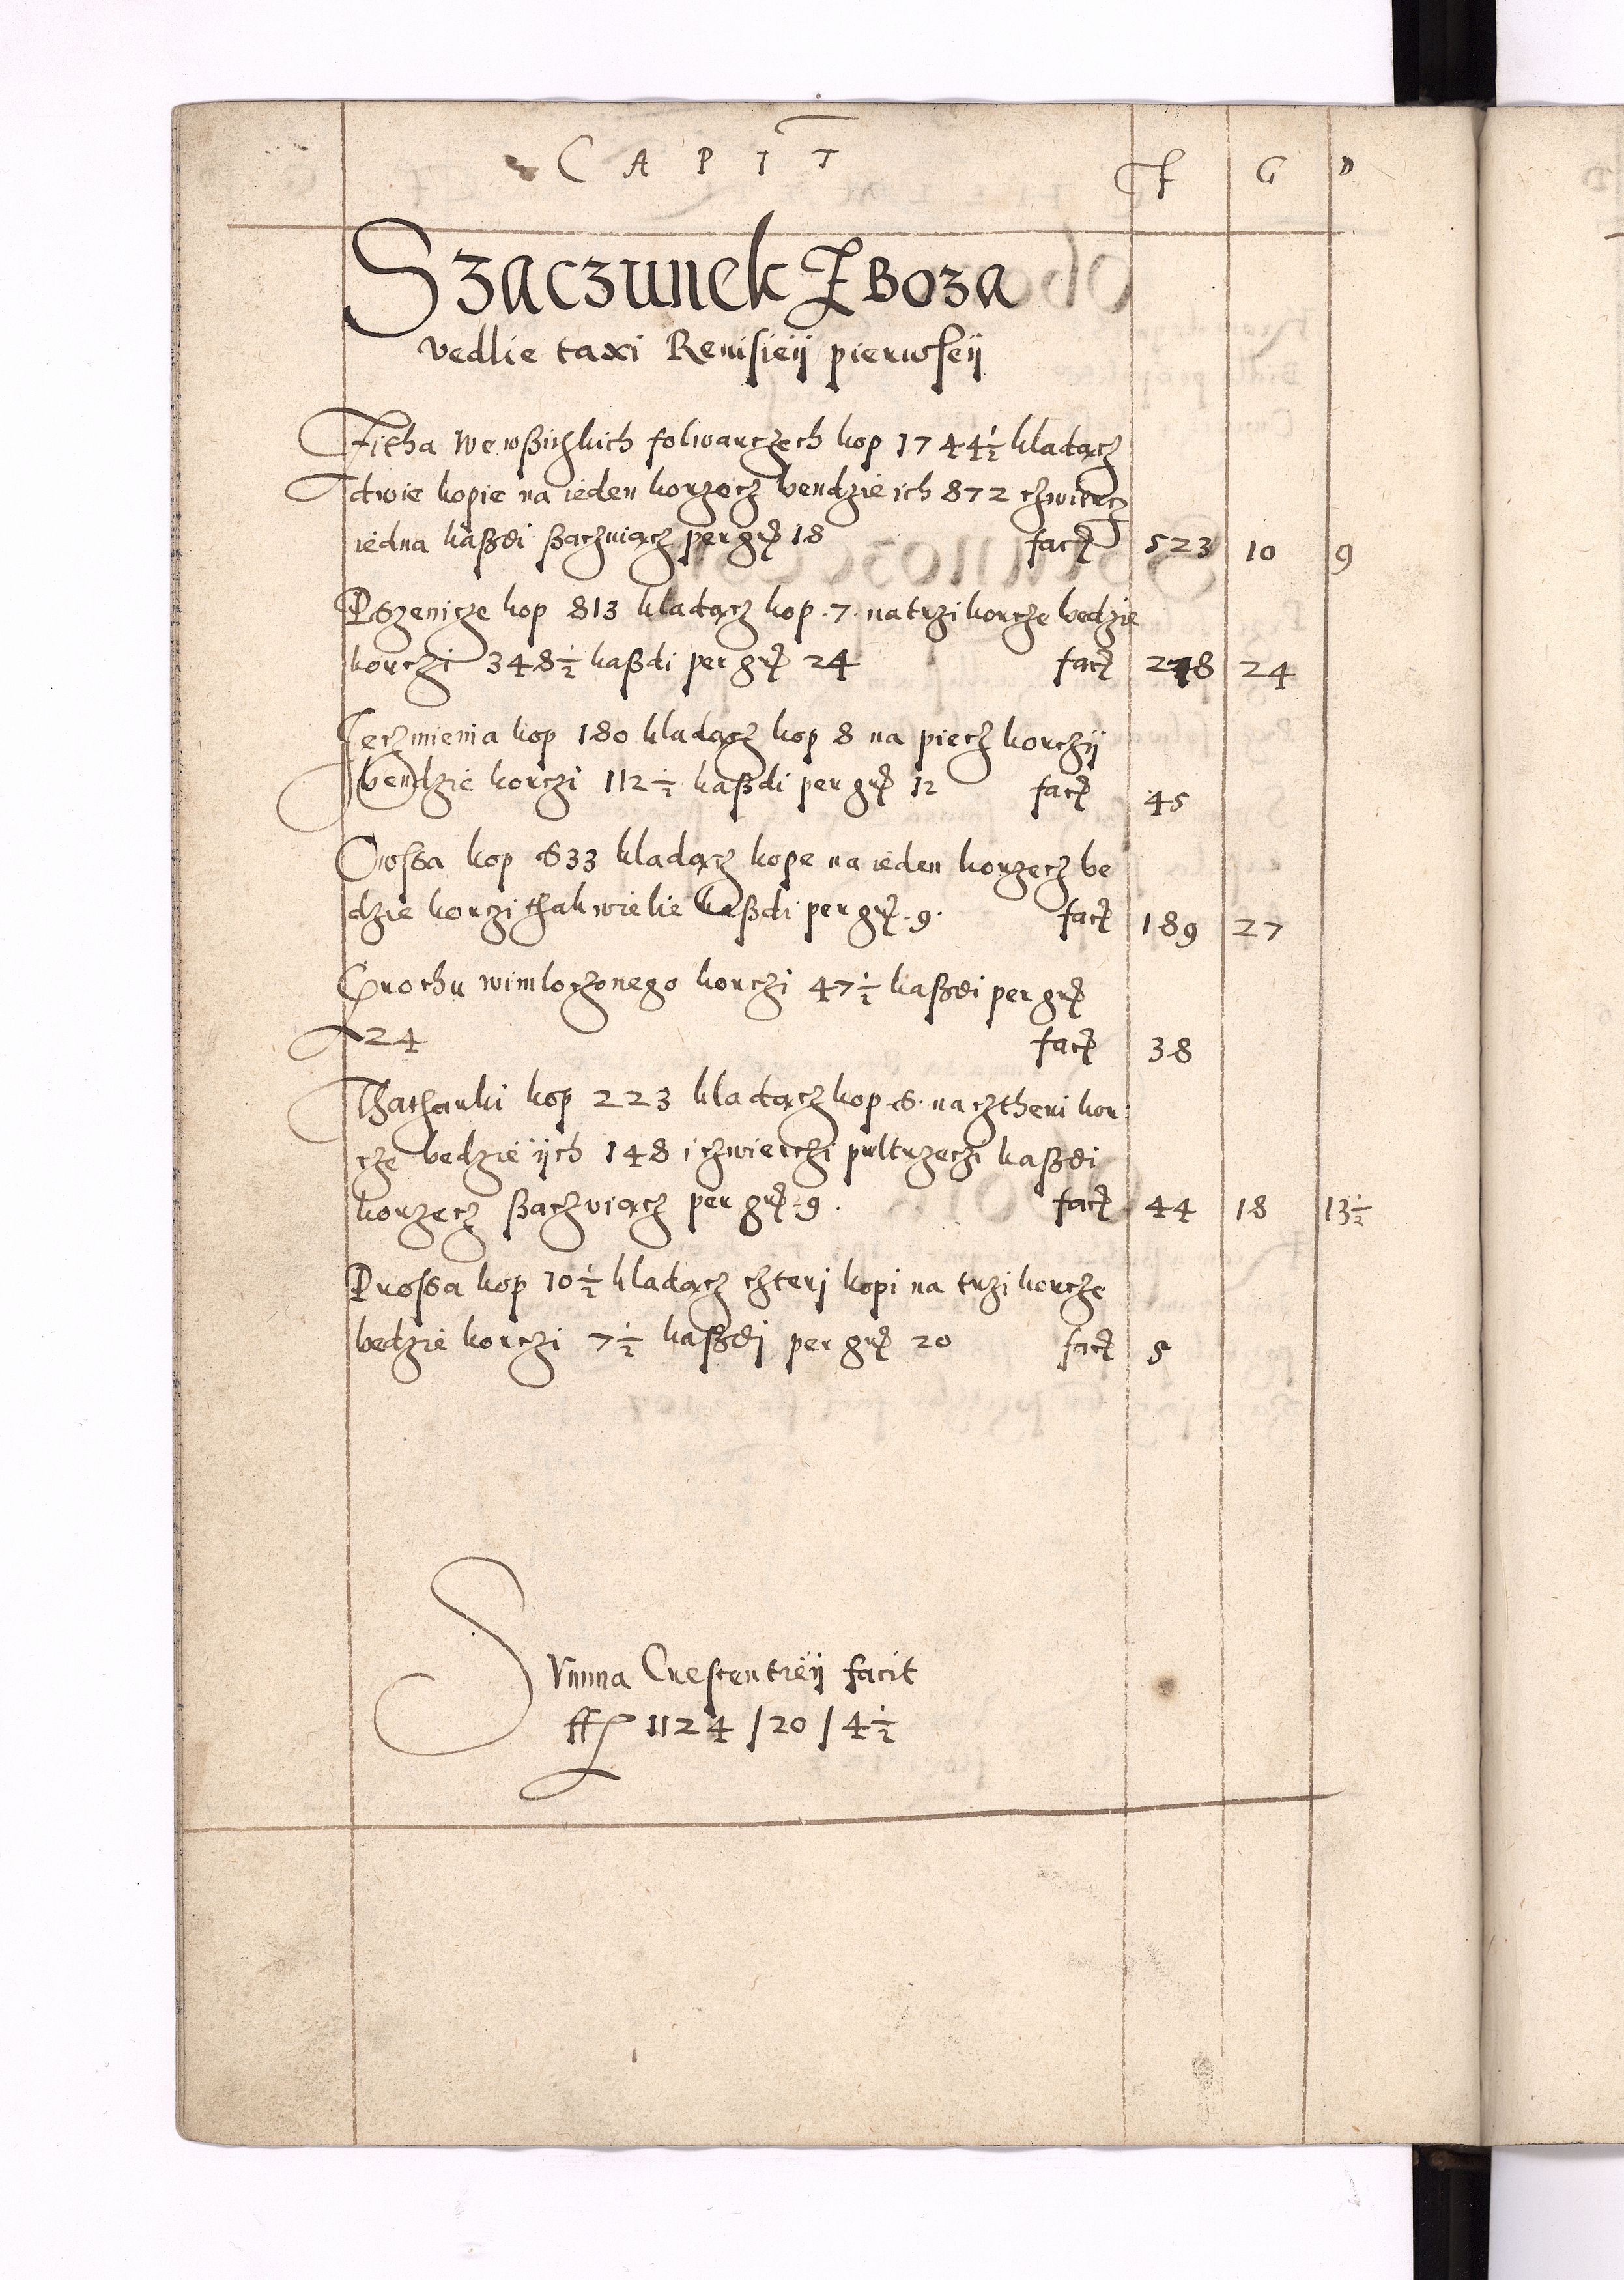 CAPIT F G D
Szaczunek Zboza
vedlie taxi Reuisieÿ pierwseÿ
Zitha wewßitzkich folwarczech kop 1744½ kladącz
dwie kopie na ieden korzecz bendzie ich 872 czwiercz
iedna kaßdi ßaczuiącz per grß 18 facit 523 10 9
Pszenicze kop 813 kladącz kop .7. na trzi korcze bedzie
korczi 348½ kaßdi per grß 24 facit 278 24
Jeczmienia kop 180 kladącz kop 8 na piecz korczÿ
bendzie korczi 112½ kaßdi per grß 12 facit 45
Owssa kop 633 kladącz kope na ieden korzecz be
dzie korczi thak wielie kaßdi per grß .9. facit 189 27
Grochu wimloczonego korczi 47½ kaßdi per grß
24 facit 38
Thatharki kop 223 kladącz kop .6. na cztheri kor:
cze bedzie ÿch 148 i czwierczi pultrzeczi kaßdi
korzecz ßaczuiącz per grß .9. facit 44 18 13½
Prossa kop 10½ kladącz czterj kopi na trzi korcze
bedzie korczi 7½ kaßdj per grß 20 facit 5
Summa Crescentieÿ facit
ff 1124 / 20 / 4½